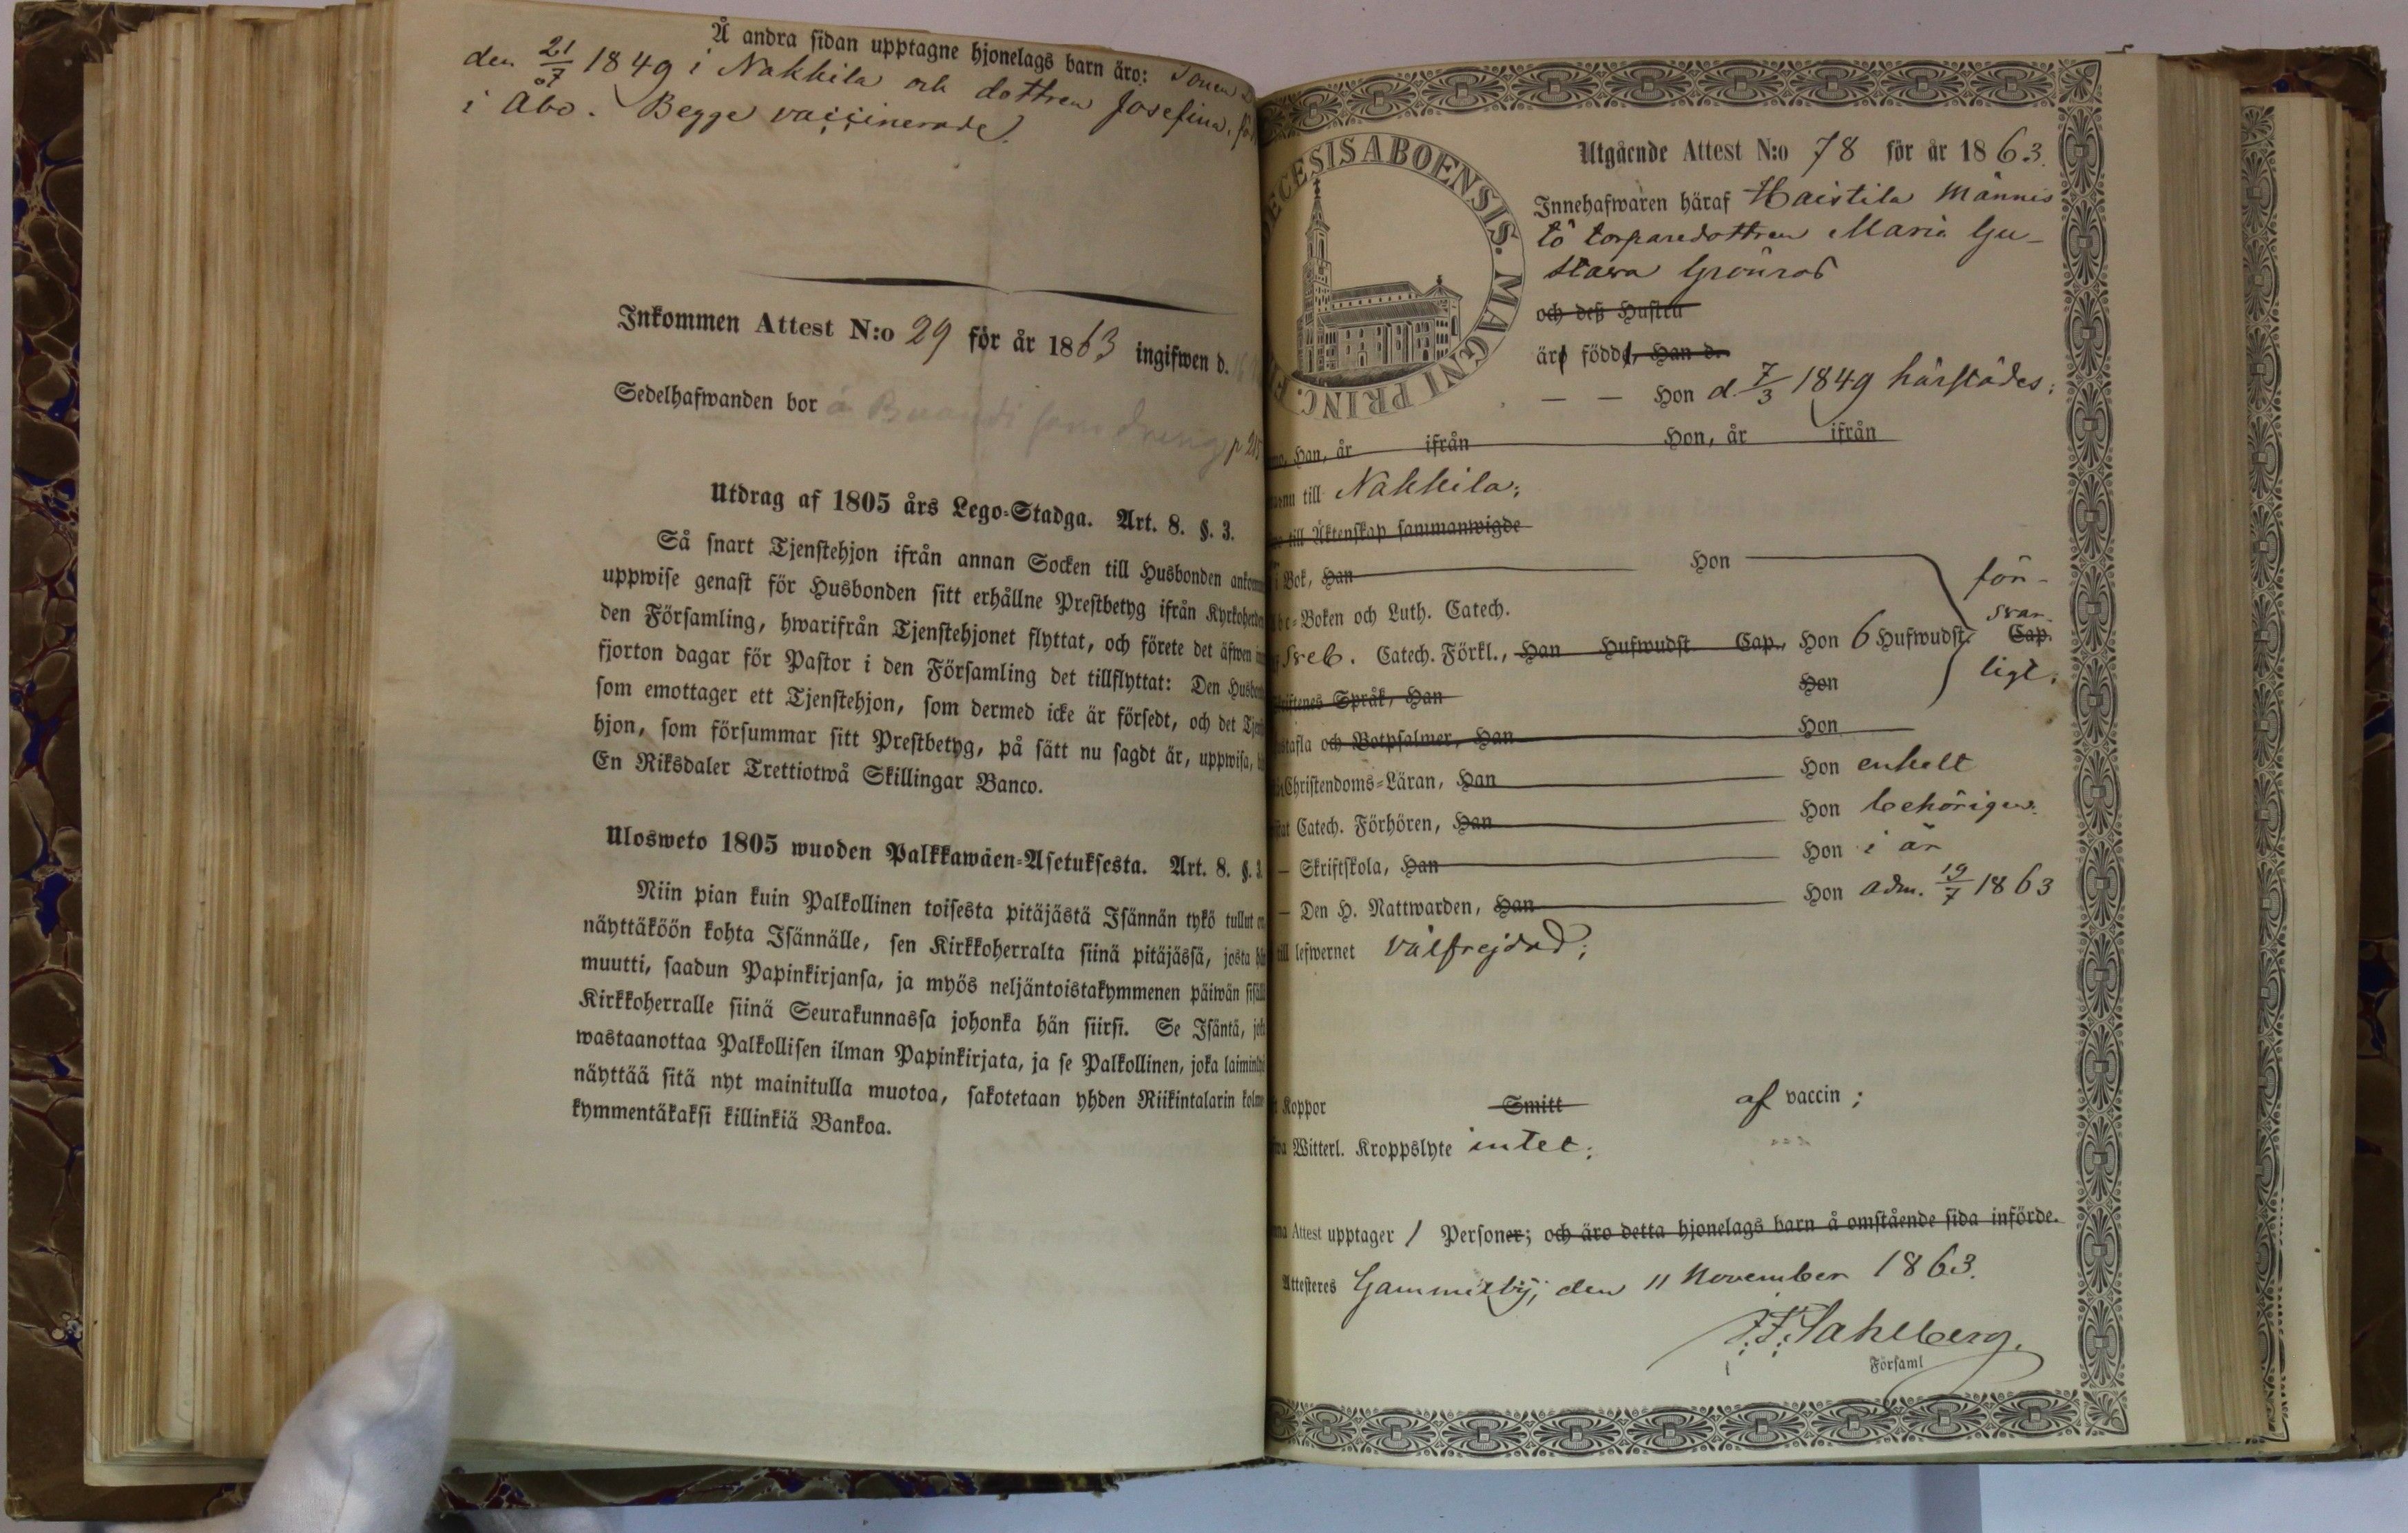 Å andra sidan upptagne hjonelags barn äro: Sonen
den 21/7 1849 i Nakkila och dottren Josefina,
i Åbo. Begge vaccinerade.
Inkommen Attest N:o 29 för år 1863 ingifwen d.
Sedelhafwanden bor å
Utdrag af 1805 års Lego-Stadga. Art. 8. §. 3.
Så snart Tjenstehjon ifrån annan Socken till Husbonden
uppwise genast för Husbonden sitt erhållne Prestbetyg ifrån
den Församling, hwarifrån Tjenstehjonet flyttat, och förete det äfwen
fjorton dagar för Pastor i den Församling det tillflyttat: Den
som emottager ett Tjenstehjon, som dermed icke är försedt, och det
hjon, som försummar sitt Prestbetyg, på sätt nu sagdt är, uppwisa,
En Riksdaler Trettiotwå Skillingar Banco.
Ulosweto 1805 wuoden Palkkawäen-Asetuksesta. Art. 8. §. 3.
Niin pian kuin Palkollinen toisesta pitäjästä Isännän tykö tullut
näyttäköön kohta Isännälle, sen Kirkkoherralta siinä pitäjässä, josta
muutti, saadun Papinkirjansa, ja myös neljäntoistakymmenen päiwän
Kirkkoherralle siinä Seurakunnassa johonka hän siirsi. Se Isäntä,
wastaanottaa Palkollisen ilman Papinkirjata, ja se Palkollinen, joka
näyttää sitä nyt mainitulla muotoa, sakotetaan yhden Riikintalarin
kymmentäkaksi killinkiä Bankoa.
ECESIS ABOENSIS. MAGNI PRINC.
Utgående Attest N:o 78 för år 1863.
Innehafwaren häraf Haistila Männis
tö torparedottren Maria Gu-
stava Grönros
och deß Hustru
äro födde, Han d.
— — Hon d. 7/3 1849 härstädes;
Han, år ifrån Hon, år ifrån
till Nakkila;
till Äktenskap sammanwigde
Bok, Han Hon för-
Boken och Luth. Catech. svar-
Sveb. Catech. Förkl., Han Hufwudst. Cap., Hon 6 Hufwudst. Cap.
Språk, Han Hon ligt;
tafla och Botpsalmer, Han Hon
Christendoms-Läran, Han Hon enkelt
Catech. Förhören, Han Hon behörigen.
— Skriftskola, Han Hon i år
— Den H. Nattwarden, Han Hon adm. 19/7 1863
till lefwernet välfrejdad;
Koppor Smitt af vaccin;
Witterl. Kroppslyte intet;
Attest upptager 1 Personer; och äro detta hjonelags barn å omstående sida införde.
Attesteres Gammelby, den 11 November 1863.
F. F. Sahlberg.
Församl